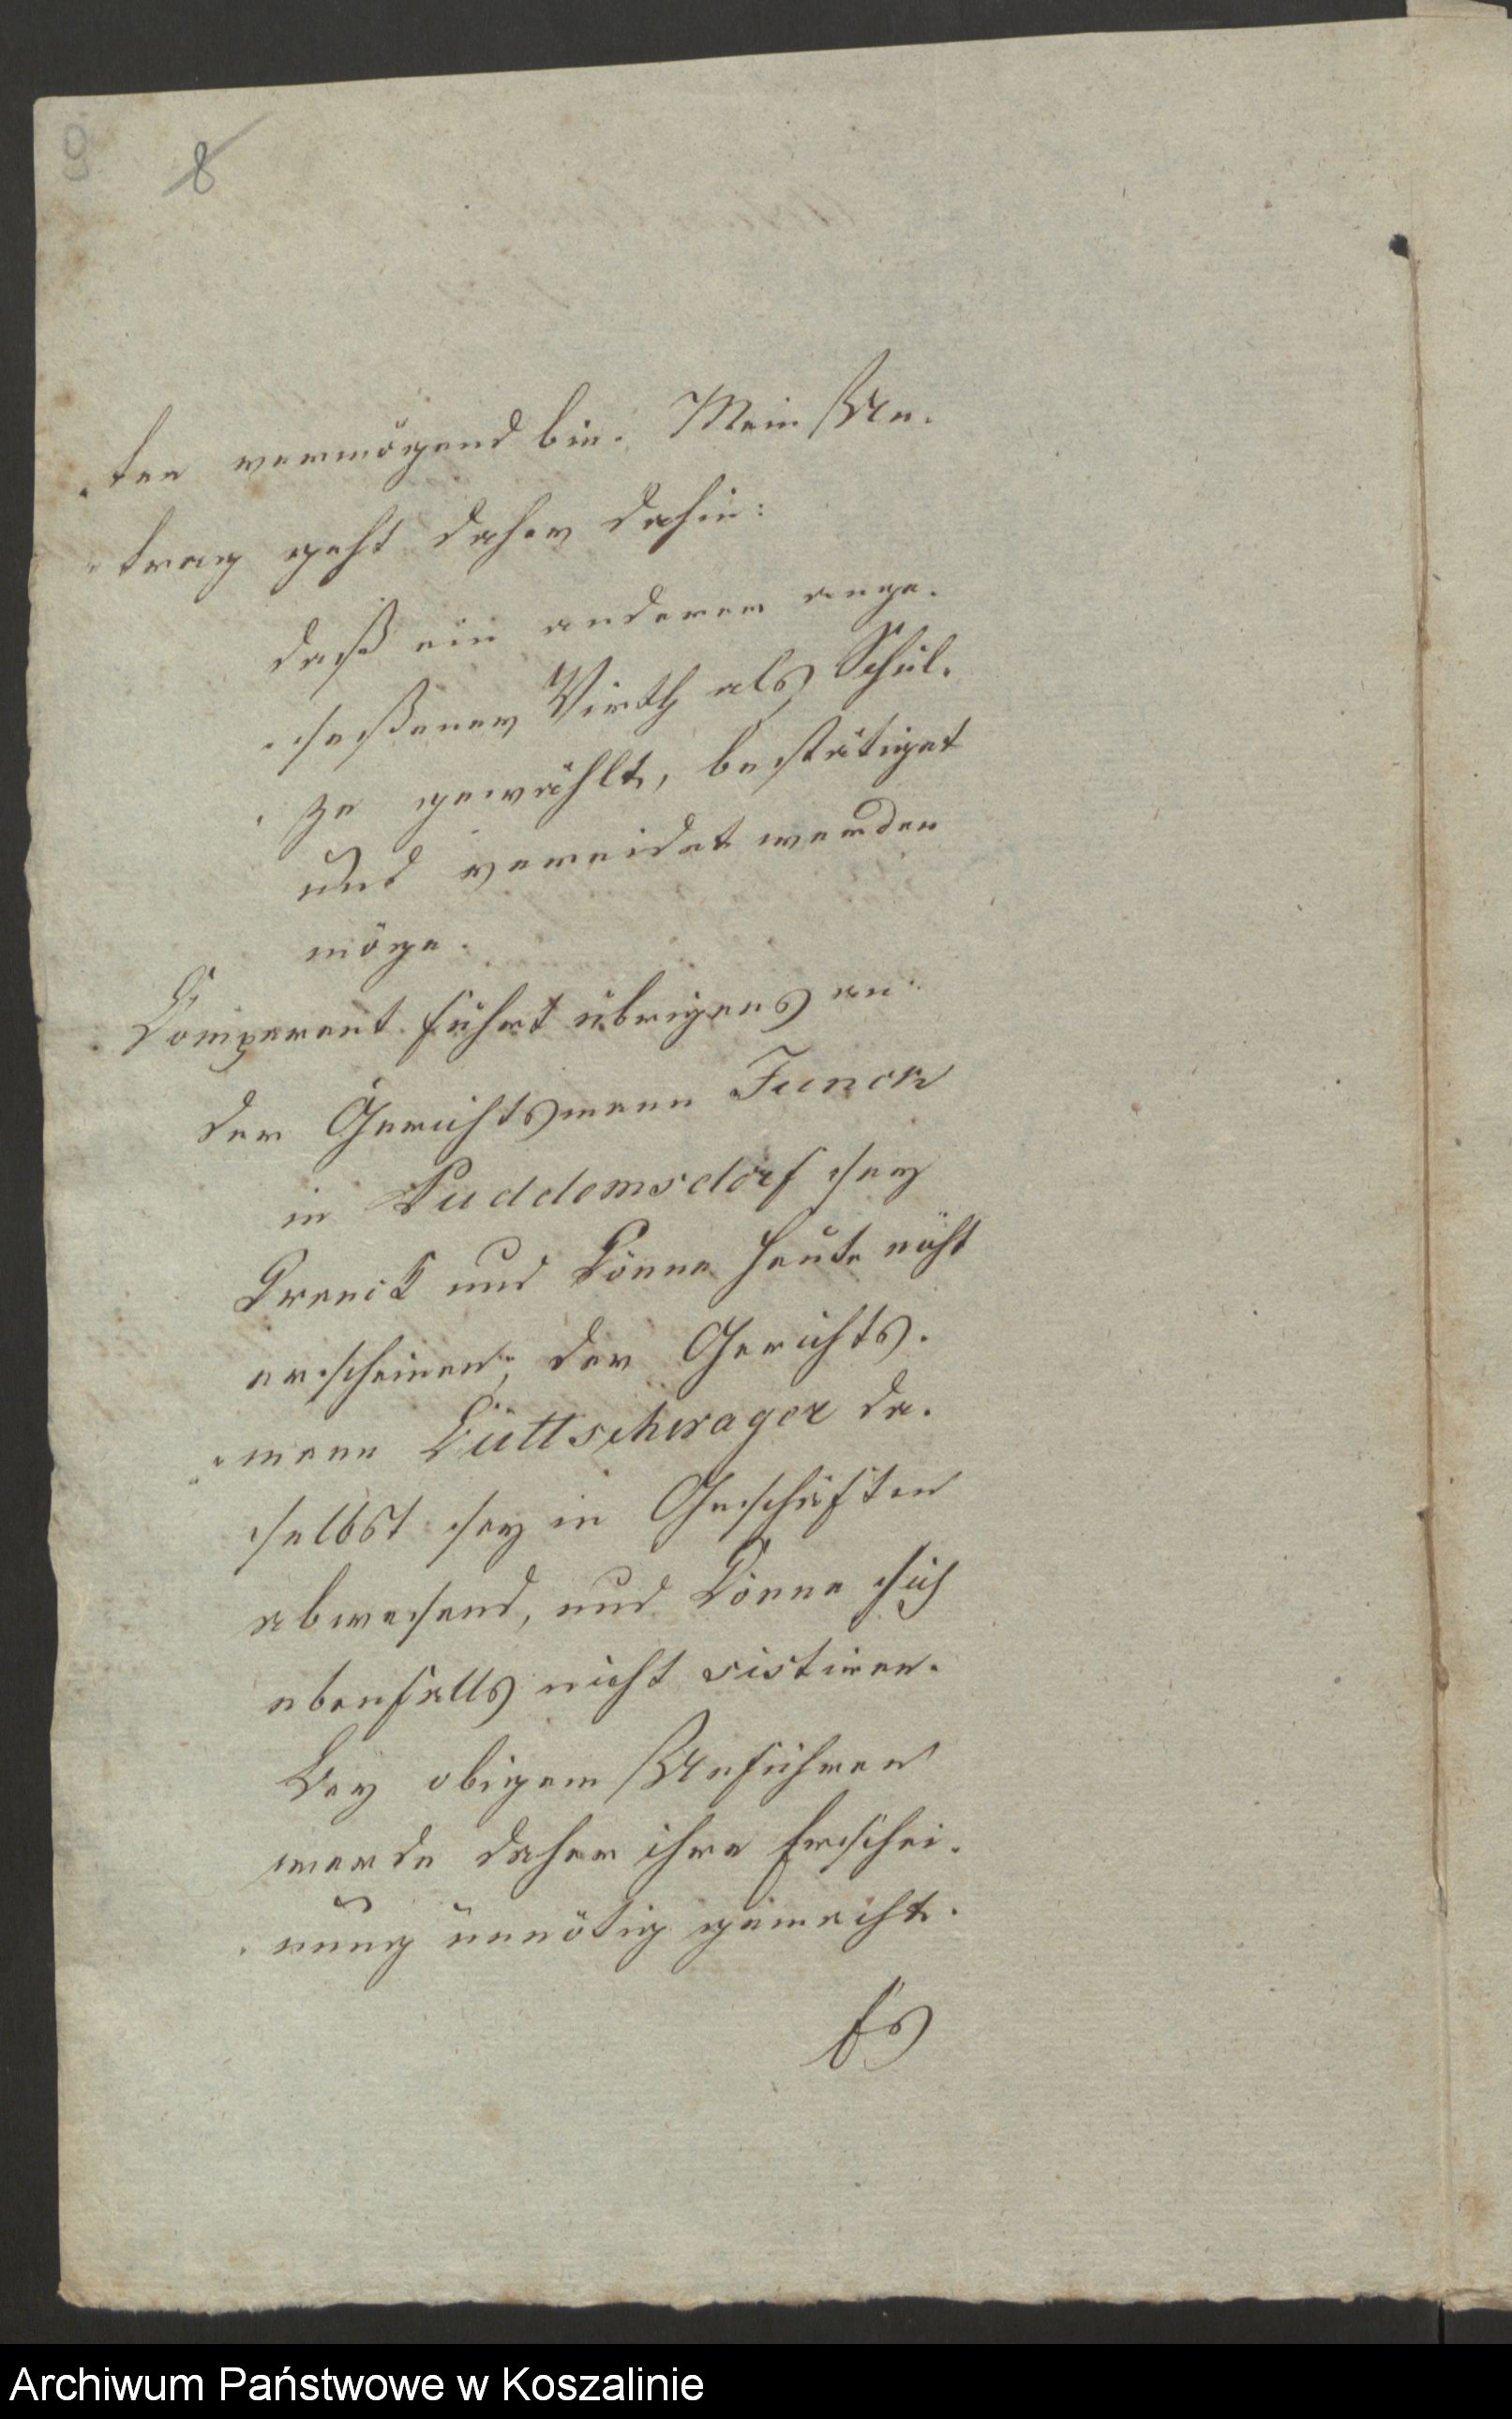 9 8
ten vermögend bin. Mein An-
trag geht daher dahin:
daß ein anderer ange-
seßener Wirth als Schul-
ze gewählt, bestätiget
und vereidet werden
möge.
Comparent führt übrigens an:
der Gerichtsmann Junck
in Puddemsdorf sey
kranck und könne heute nicht
erscheinen, der Gerichts-
mann Lüttschwager da-
selbst sey in Geschäften
abwesend, und könne sich
ebenfalls nicht sistiren.
Bey obigem Anführen
werde daher ihre Erschei-
nung unnötig gemacht.
Es
Archiwum Państwowe w Koszalinie